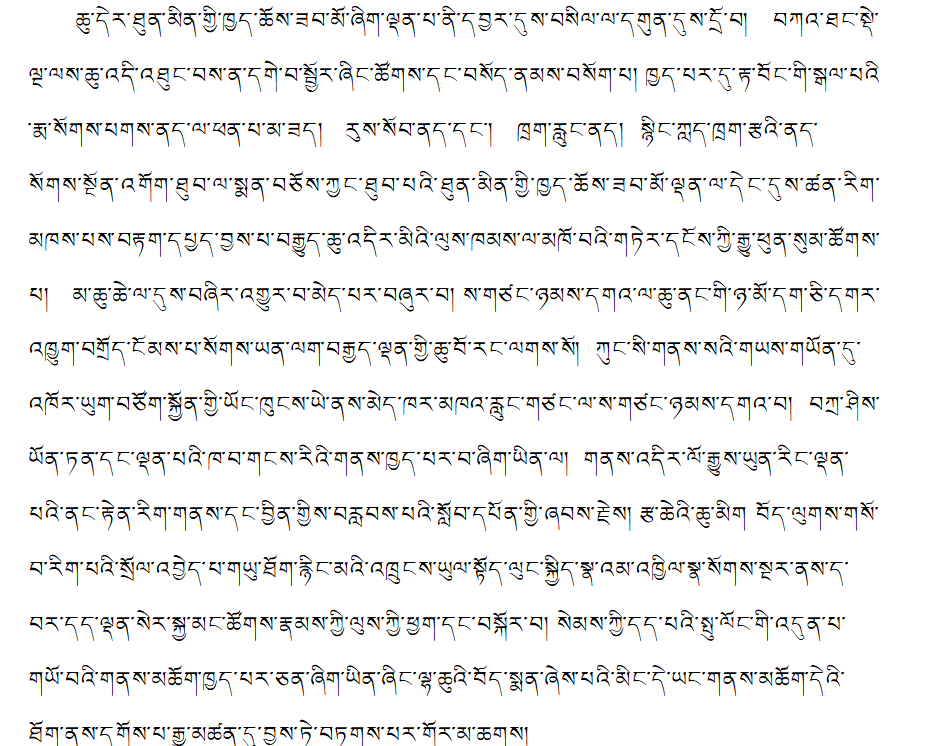 ཆུ་དེར་ཐུན་མིན་གྱི་ཁྱད་ཆོས་ཟབ་མོ་ཞིག་ལྡན་པ་ནི་དབྱར་དུས་བསིལ་ལ་དགུན་དུས་དྲོ་བ། བཀའ་ཐང་སྡེ་
ལྔ་ལས་ཆུ་འདི་འཐུང་བས་ན་དགེ་བ་སྦྱོར་ཞིང་ཚོགས་དང་བསོད་ནམས་བསོག་པ། ཁྱད་པར་དུ་རྟ་བོང་གི་སྒལ་པའི་
་རྨ་སོགས་པགས་ནད་ལ་ཕན་པ་མ་ཟད། རུས་སོབ་ནད་དང་། ཁྲག་རླུང་ནད། སྙིང་ཀླད་ཁྲག་རྩའི་ནད་
སོགས་སྔོན་འགོག་ཐུབ་ལ་སྨན་བཅོས་ཀྱང་ཐུབ་པའི་ཐུན་མིན་གྱི་ཁྱད་ཆོས་ཟབ་མོ་ལྡན་ལ་དེང་དུས་ཚན་རིག་
མཁས་པས་བརྟག་དཔྱད་བྱས་པ་བརྒྱུད་ཆུ་འདིར་མིའི་ལུས་ཁམས་ལ་མཁོ་བའི་གཏེར་དངོས་ཀྱི་རྒྱུ་ཕུན་སུམ་ཚོགས་
པ། མ་ཆུ་ཆེ་ལ་དུས་བཞིར་འགྱུར་བ་མེད་པར་བཞུར་བ། ས་གཙང་ཉམས་དགའ་ལ་ཆུ་ནང་གི་ཉ་མོ་དག་ཅི་དགར་
འཁྱུག་བགྲོད་ངོམས་པ་སོགས་ཡན་ལག་བརྒྱད་ལྡན་གྱི་ཆུ་བོ་རང་ལགས་སོ། ཀུང་སི་གནས་སའི་གཡས་གཡོན་དུ་
འཁོར་ཡུག་བཙོག་སྐྱོན་གྱི་ཡོང་ཁུངས་ཡེ་ནས་མེད་ཁར་མཁའ་རླུང་གཙང་ལ་ས་གཙང་ཉམས་དགའ་བ། བཀྲ་ཤིས་
ཡོན་ཏན་དང་ལྡན་པའི་ཁ་བ་གངས་རིའི་གནས་ཁྱད་པར་བ་ཞིག་ཡིན་ལ། གནས་འདིར་ལོ་རྒྱུས་ཡུན་རིང་ལྡན་
པའི་ནང་རྟེན་རིག་གནས་དང་བྱིན་གྱིས་བརླབས་པའི་སློབ་དཔོན་གྱི་ཞབས་རྗེས། རྩ་ཆེའི་ཆུ་མིག བོད་ལུགས་གསོ་
བ་རིག་པའི་སྲོལ་འབྱེད་པ་གཡུ་ཐོག་རྙིང་མའི་འཁྲུངས་ཡུལ་སྟོད་ལུང་སྐྱིད་སྣ་འམ་འཁྱིལ་སྣ་སོགས་སྔར་ནས་ད་
བར་དད་ལྡན་སེར་སྐྱ་མང་ཚོགས་རྣམས་ཀྱི་ལུས་ཀྱི་ཕྱག་དང་བསྐོར་བ། སེམས་ཀྱི་དད་པའི་སྤུ་ལོང་གི་འདུན་པ་
གཡོ་བའི་གནས་མཆོག་ཁྱད་པར་ཅན་ཞིག་ཡིན་ཞིང་ལྷ་ཆུའི་བོད་སྨན་ཞེས་པའི་མིང་དེ་ཡང་གནས་མཆོག་དེའི་
ཐོག་ནས་དགོས་པ་རྒྱུ་མཚན་དུ་བྱས་ཏེ་བཏགས་པར་གོར་མ་ཆགས།